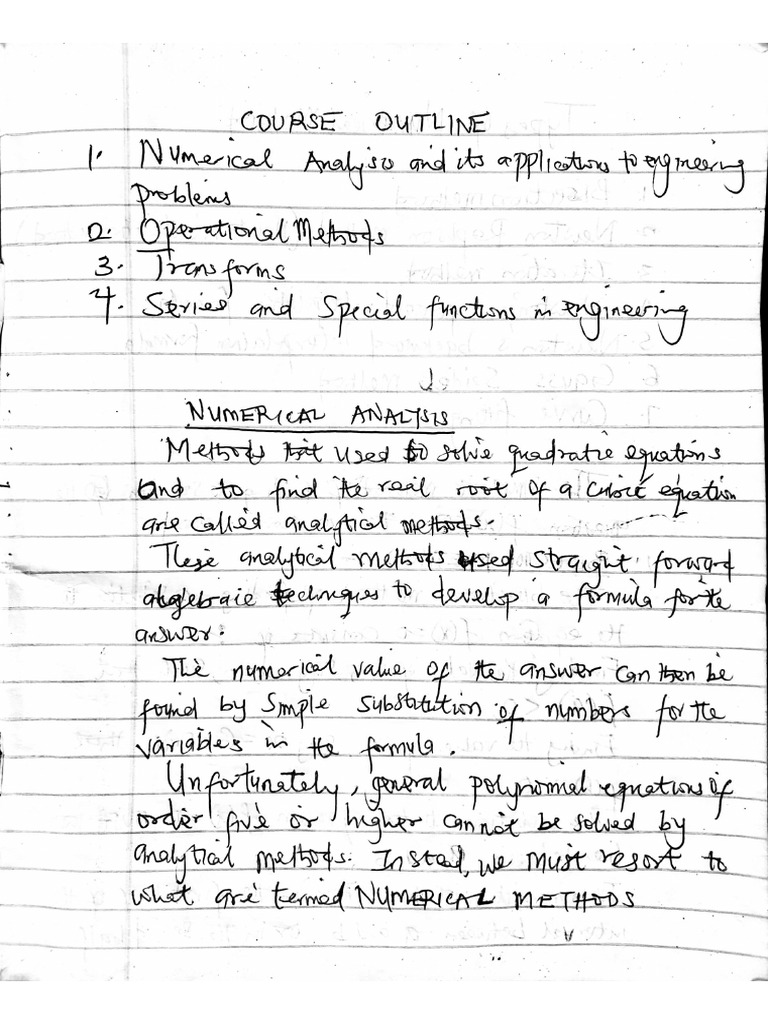 COURSE OUTLINE
1. Numerical Analysis and its applications to engineering
problems
2. Operational Methods
3. Transforms
4. Series and Special functions in engineering
NUMERICAL ANALYSIS
Methods used to solve quadratic equations
and to find the real root of a cubic equation
are called analytical methods.
These analytical methods used straight forward
algebraic techniques to develop a formula for the
answer.
The numerical value of the answer can then be
found by simple substitution of numbers for the
variables in the formula.
Unfortunately, general polynomial equations of
order five or higher cannot be solved by
analytical methods. Instead, we must resort to
what are termed NUMERICAL METHODS